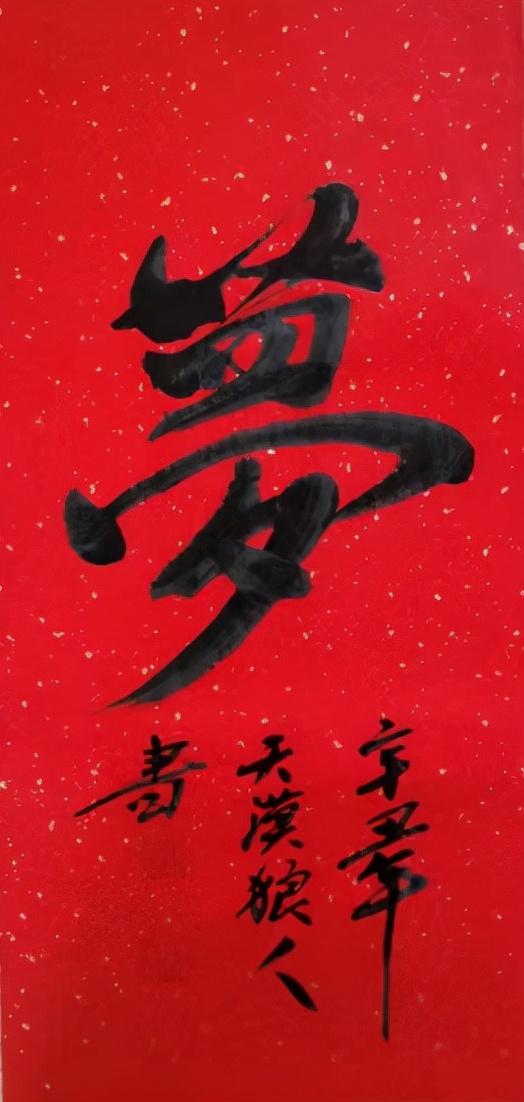 夢
辛丑年
天漠狼人
書